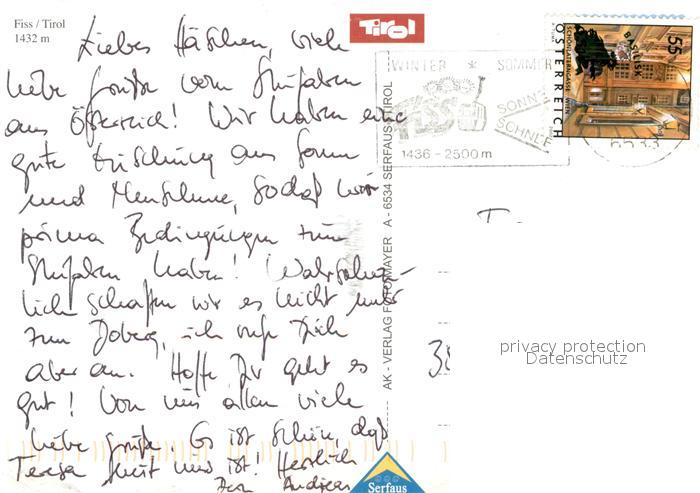 Fiss / Tirol
1432 m
Tirol
Liebes Häschen, viele
liebe Grüße vom Skifahren
aus Österreich! Wir haben eine
gute Mischung aus Sonne
und Menschen, sodaß wir
prima Bedingungen zum
Skifahren haben! Wahrschein-
lich schaffen wir es nicht mehr
zum Doberg, ich rufe Dich
aber an. Hoffe Dir geht es
gut! Von uns allen viele
liebe Grüße. Es ist schön, daß
Teresa mit uns ist! Herzlich
Dein Andreas
AK - VERLAG FOTO MAYER A - 6534 SERFAUS-TIROL
WINTER * SOMMER
FISS
SONNE
SCHNEE
1436 - 2500 m
6533
55
BASILISK
SCHÖNLATERNGASSE WIEN
ÖSTERREICH
T
38
privacy protection
Datenschutz
Serfaus